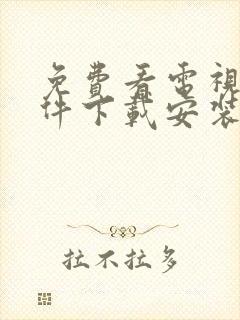 免費看電視
件下載安裝
拉不拉多